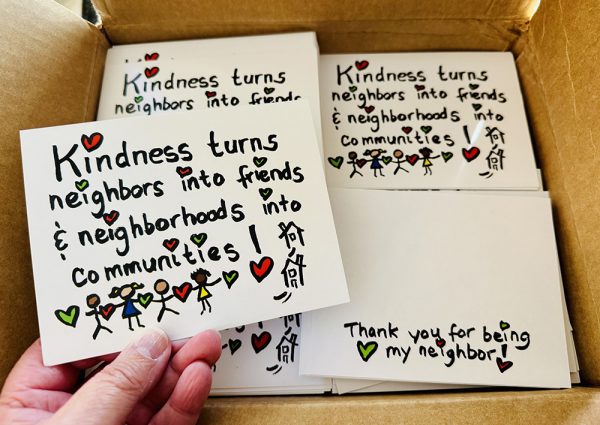 Kindness turns
neighbors into friends
Kindness turns
neighbors into friends
& neighborhoods into
communities!
Kindness turns
neighbors into friends
& neighborhoods into
communities!
Thank you for being
my neighbor!